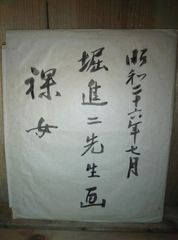 昭和二十六年七月
堀進二先生画
裸女